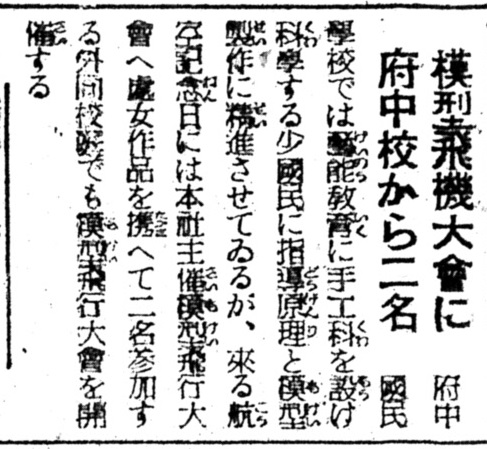 模型飛機大會に
府中校から二名
府中
國民
學校では藝能教育に手工科を設け
科學する少國民に指導原理と模型
製作に精進させてゐるが、來る航
空記念日には本社主催模型飛行大
會へ處女作品を携へて二名參加す
る外同校でも模型飛行大會を開
催する